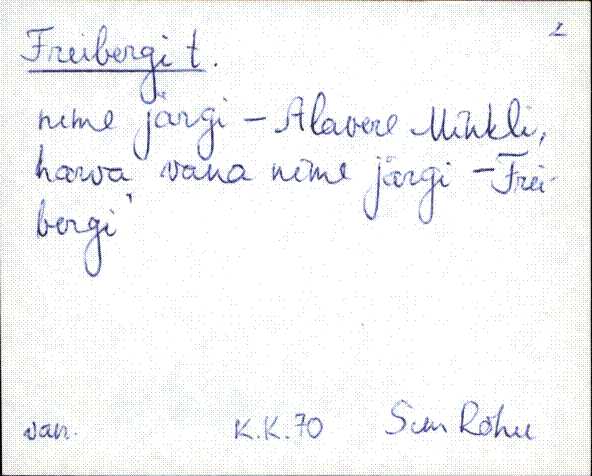 2
Freibergi t.
nime järgi – Alavere Minkli,
harva vana nime järgi – Frei-
bergi"
van. K.K.70 Sim Rõhu